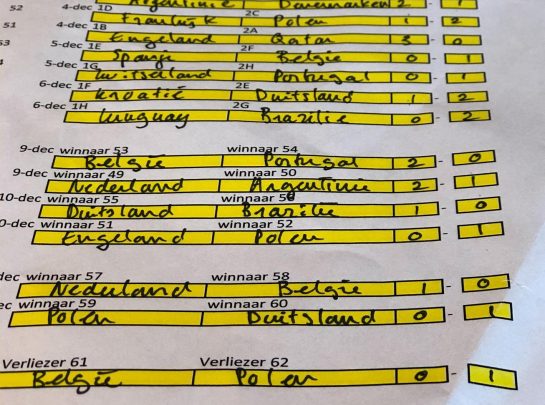 52 Argentinie Denemarken 2 - 1
4-dec 1D 2C
51 Frankrijk Polen 1 - 2
4-dec 1B 2A
53 Engeland Qatar 3 - 0
5-dec 1E 2F
Spanje België 0 - 1
5-dec 1G 2H
Zwitserland Portugal 0 - 1
6-dec 1F 2E
Kroatië Duitsland 1 - 2
6-dec 1H 2G
Uruguay Brazilie 0 - 2
9-dec winnaar 53 winnaar 54
België Portugal 2 - 0
9-dec winnaar 49 winnaar 50
Nederland Argentinie 2 - 1
10-dec winnaar 55 winnaar 56
Duitsland Brazilië 1 - 0
0-dec winnaar 51 winnaar 52
Engeland Polen 0 - 1
dec winnaar 57 winnaar 58
Nederland België 1 - 0
ec winnaar 59 winnaar 60
Polen Duitsland 0 - 1
Verliezer 61 Verliezer 62
België Polen 0 - 1